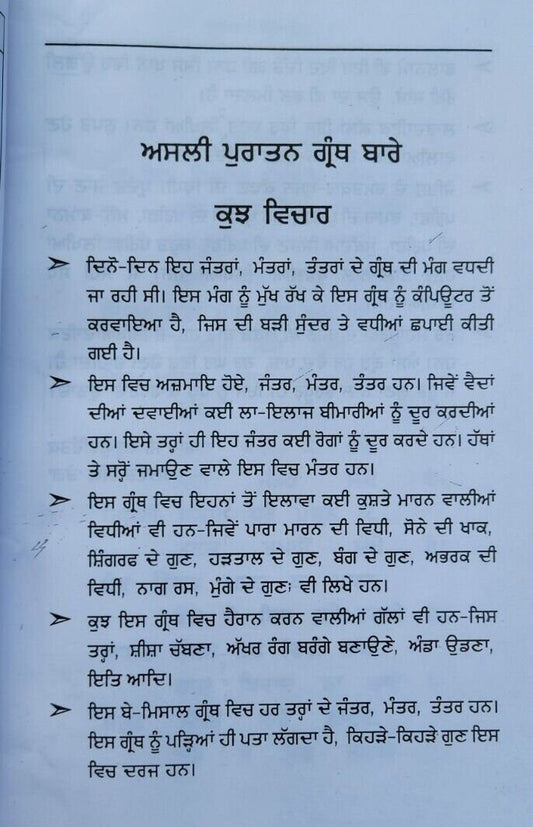 ਅਸਲੀ ਪੁਰਾਤਨ ਗ੍ਰੰਥ ਬਾਰੇ
ਕੁਝ ਵਿਚਾਰ
➤ ਦਿਨੋ-ਦਿਨ ਇਹ ਜੰਤਰਾਂ, ਮੰਤਰਾਂ, ਤੰਤਰਾਂ ਦੇ ਗ੍ਰੰਥ ਦੀ ਮੰਗ ਵਧਦੀ
ਜਾ ਰਹੀ ਸੀ। ਇਸ ਮੰਗ ਨੂੰ ਮੁੱਖ ਰੱਖ ਕੇ ਇਸ ਗ੍ਰੰਥ ਨੂੰ ਕੰਪਿਊਟਰ ਤੋਂ
ਕਰਵਾਇਆ ਹੈ, ਜਿਸ ਦੀ ਬੜੀ ਸੁੰਦਰ ਤੇ ਵਧੀਆਂ ਛਪਾਈ ਕੀਤੀ
ਗਈ ਹੈ।
➤ ਇਸ ਵਿਚ ਅਜ਼ਮਾਇ ਹੋਏ, ਜੰਤਰ, ਮੰਤਰ, ਤੰਤਰ ਹਨ। ਜਿਵੇਂ ਵੈਦਾਂ
ਦੀਆਂ ਦਵਾਈਆਂ ਕਈ ਲਾ-ਇਲਾਜ ਬੀਮਾਰੀਆਂ ਨੂੰ ਦੂਰ ਕਰਦੀਆਂ
ਹਨ। ਇਸੇ ਤਰ੍ਹਾਂ ਹੀ ਇਹ ਜੰਤਰ ਕਈ ਰੋਗਾਂ ਨੂੰ ਦੂਰ ਕਰਦੇ ਹਨ। ਹੱਥਾਂ
ਤੇ ਸਰ੍ਹੋਂ ਜਮਾਉਣ ਵਾਲੇ ਇਸ ਵਿਚ ਮੰਤਰ ਹਨ।
➤ ਇਸ ਗ੍ਰੰਥ ਵਿਚ ਇਹਨਾਂ ਤੋਂ ਇਲਾਵਾ ਕਈ ਕੁਸ਼ਤੇ ਮਾਰਨ ਵਾਲੀਆਂ
ਵਿਧੀਆਂ ਵੀ ਹਨ-ਜਿਵੇਂ ਪਾਰਾ ਮਾਰਨ ਦੀ ਵਿਧੀ, ਸੋਨੇ ਦੀ ਖਾਕ,
ਸ਼ਿੰਗਰਫ ਦੇ ਗੁਣ, ਹੜਤਾਲ ਦੇ ਗੁਣ, ਬੰਗ ਦੇ ਗੁਣ, ਅਭਰਕ ਦੀ
ਵਿਧੀ, ਨਾਗ ਰਸ, ਮੁੰਗੇ ਦੇ ਗੁਣਃ ਵੀ ਲਿਖੇ ਹਨ।
➤ ਕੁਝ ਇਸ ਗ੍ਰੰਥ ਵਿਚ ਹੈਰਾਨ ਕਰਨ ਵਾਲੀਆਂ ਗੱਲਾਂ ਵੀ ਹਨ-ਜਿਸ
ਤਰ੍ਹਾਂ, ਸ਼ੀਸ਼ਾ ਚੱਬਣਾ, ਅੱਖਰ ਰੰਗ ਬਰੰਗੇ ਬਣਾਉਣੇ, ਅੰਡਾ ਉਡਣਾ,
ਇਤਿ ਆਦਿ।
➤ ਇਸ ਬੇ-ਮਿਸਾਲ ਗ੍ਰੰਥ ਵਿਚ ਹਰ ਤਰ੍ਹਾਂ ਦੇ ਜੰਤਰ, ਮੰਤਰ, ਤੰਤਰ ਹਨ।
ਇਸ ਗ੍ਰੰਥ ਨੂੰ ਪੜ੍ਹਿਆਂ ਹੀ ਪਤਾ ਲੱਗਦਾ ਹੈ, ਕਿਹੜੇ-ਕਿਹੜੇ ਗੁਣ ਇਸ
ਵਿਚ ਦਰਜ ਹਨ।